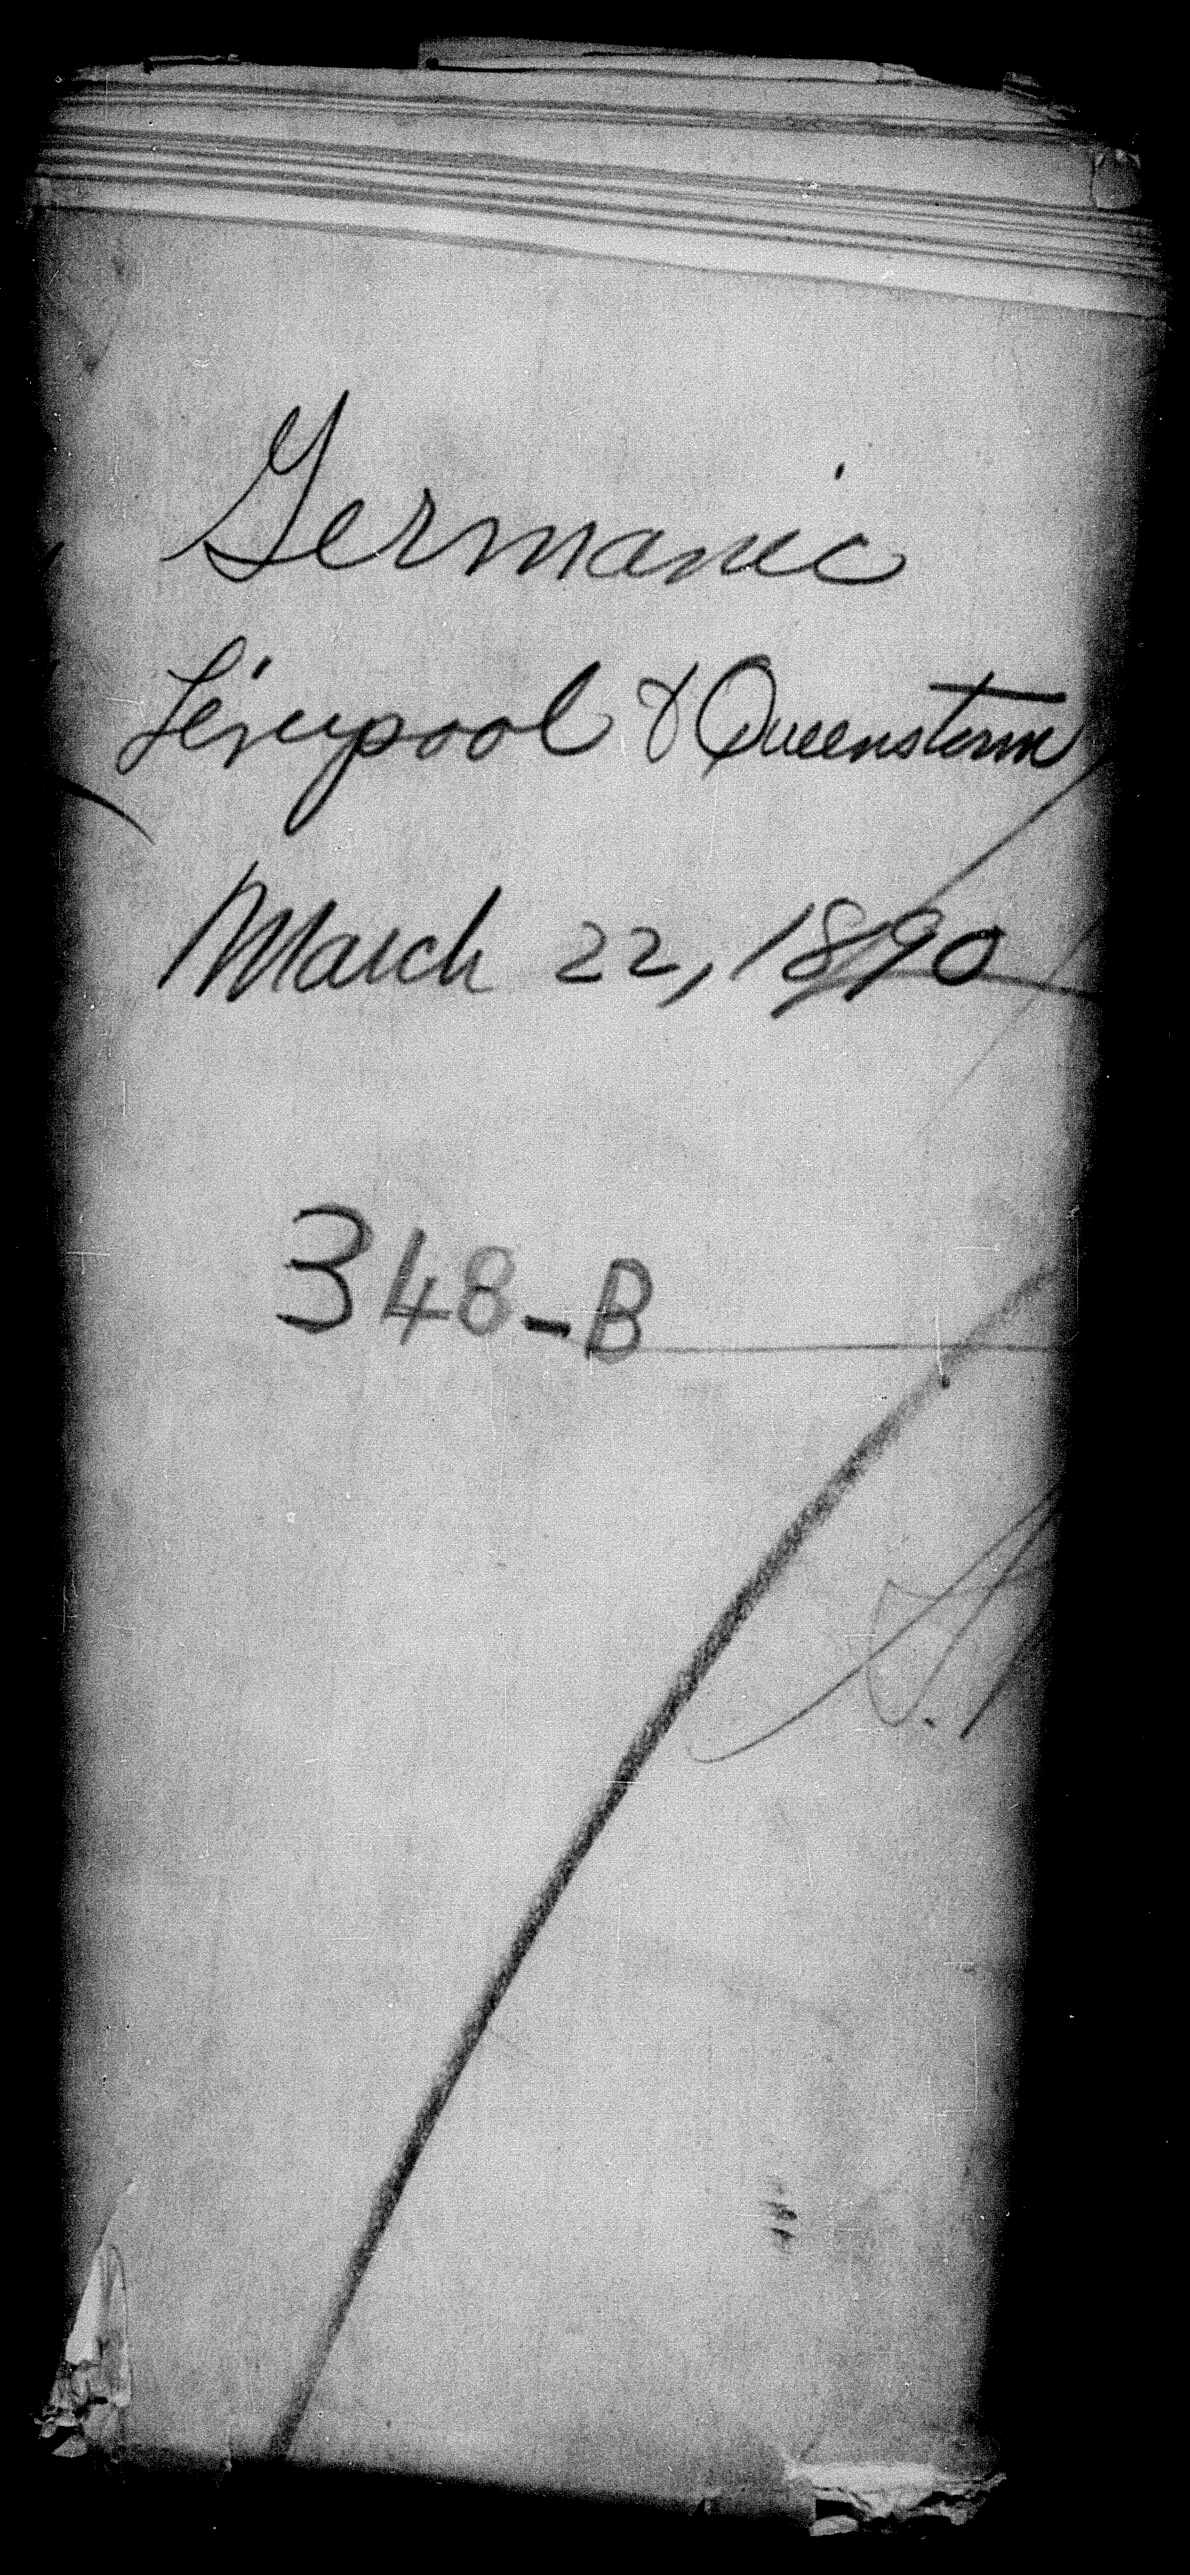 Germanic
Liverpool & Queenstown
March 22, 1890
348-B